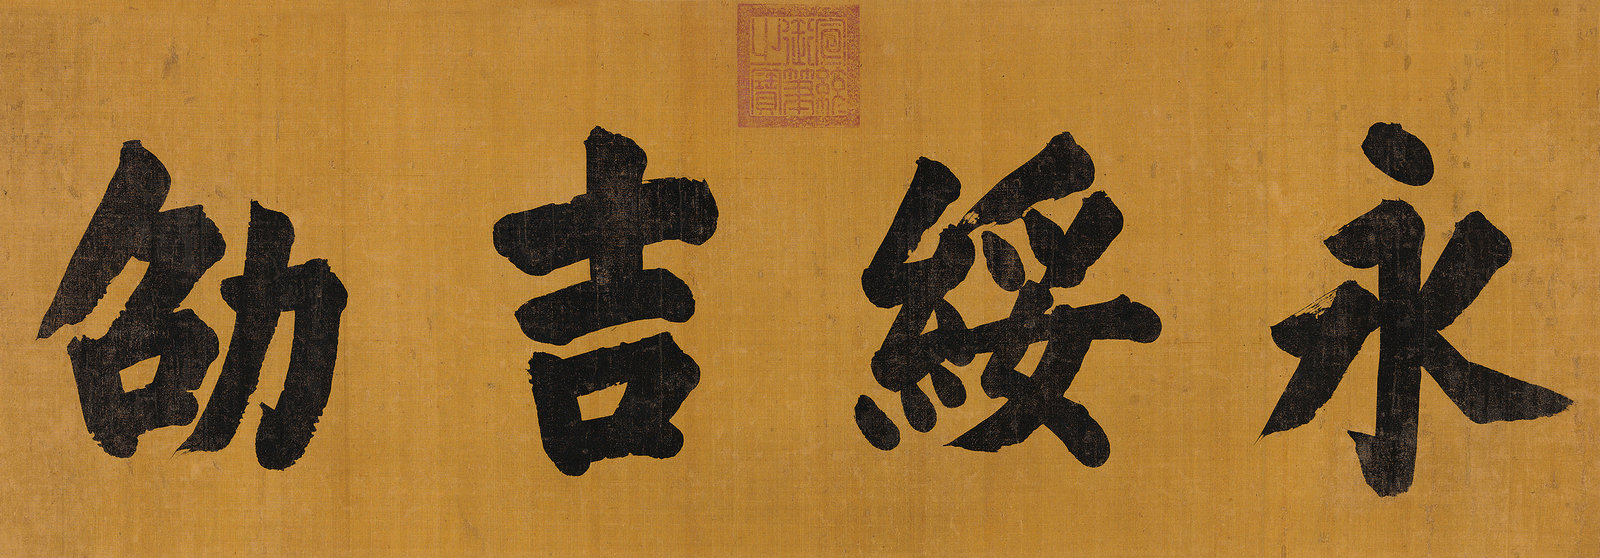 永綏吉劭
宣統御筆之寶